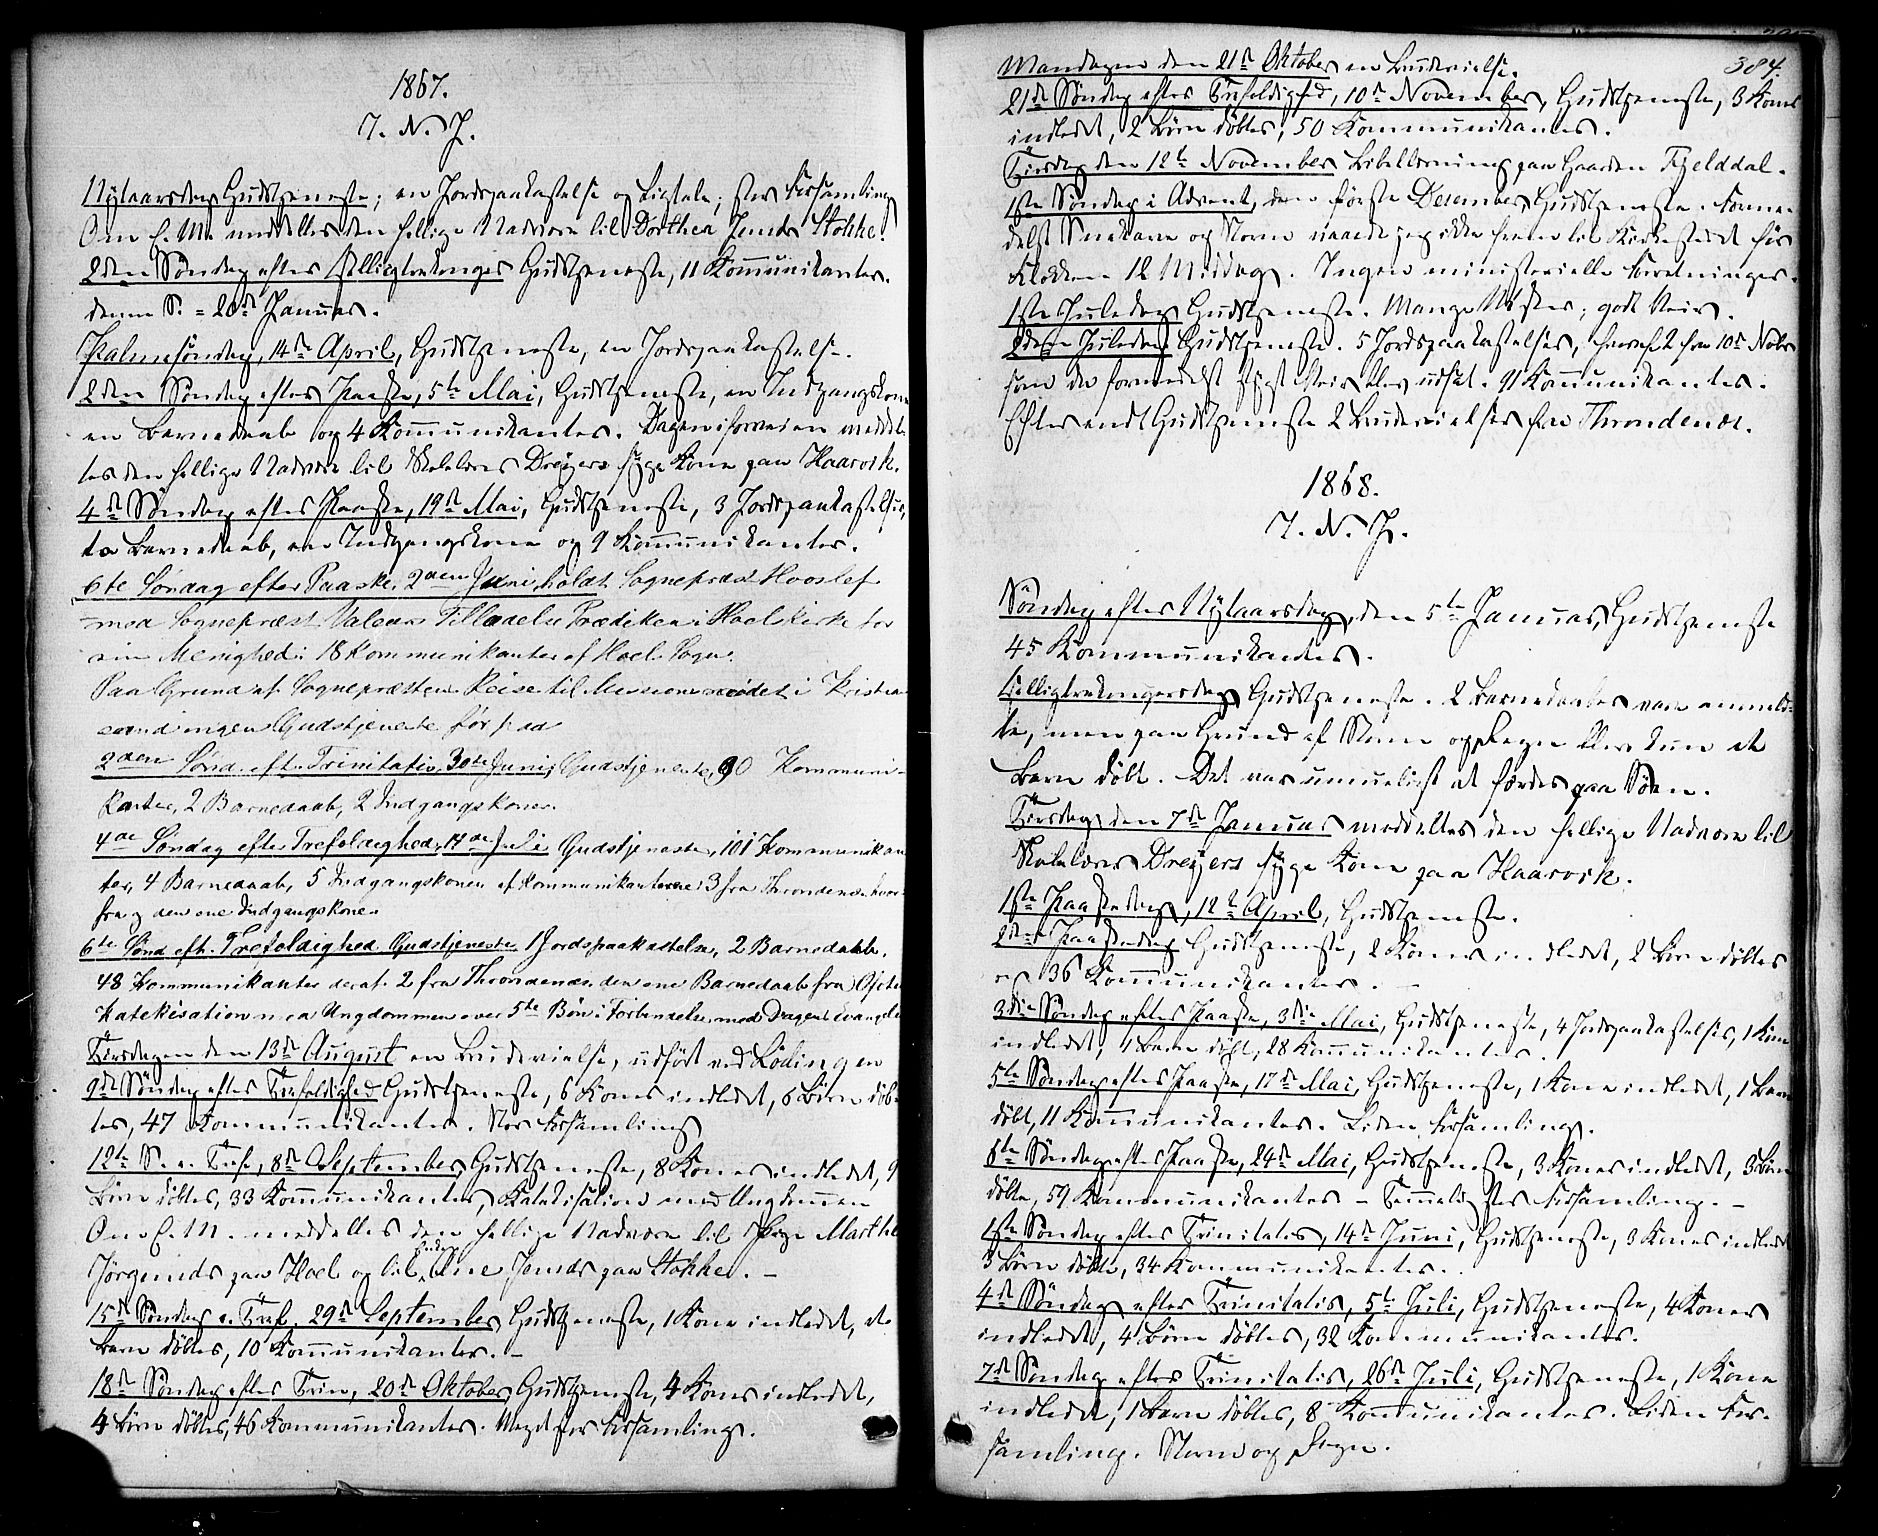 1867.
I. N. J.
Nytaarsdag Gudstjeneste; en Jordpaakastelse og Ligtale; stor Forsamling
Om E. M. meddeltes den hellige Nadvere til Dorthea Jensd. Stokke.
2den Søndag efter Helligtrekonger Gudstjeneste, 11 Kommunikanter.
denne S. = 20de Januar.
Palmesøndag, 14de April, Gudstjeneste, en Jordpaakastelse.
2den Søndag efter Paaske, 5te Mai, Gudstjeneste, en Indgangskone
en Barnedaab og 4 Kommunikanter. Dagen iforveien meddel-
tes den hellige Nadvere til Skolelærer Dreyers syge Kone paa Haarvik.
4de Søndag efter Paaske, 19de Mai, Gudstjeneste, 3 Jordpaakastelser,
to Barnedaab, en Indgangskone og 9 Kommunikanter.
6te Søndag efter Paaske, 2den Juni, holdt Sognepræst Hooslef
med Sognepræst Valeurs Tilladelse Prædiken i Hoels Kirke for
sin Menighed: 18 Kommunikanter af Hoel Sogn.
Paa Grund af Sognepræstens Reise til Missionsmødet i Kristian
sand ingen Gudstjeneste før paa
2den Sønd. eft. Trinitatis, 30te Juni, Gudstjeneste, 90 Kommuni-
kanter, 2 Barnedaab, 2 Indgangskoner.
4de Søndag efter Trefoldighed, 14de Juli Gudstjeneste, 101 Kommunikan
ter, 4 Barnedaab, 5 Indgangskoner af Kommunikanterne 3 fra Throndenæs hvor-
fra og den ene Indgangskone.
6te Sønd eft. Trefoldighed Gudstjeneste 1 Jordspaakastelse, 2 Barnedaab.
48 Kommunikanter deraf 2 fra Throndenæs den ene Barnedaab fra
Katekisation med Ungdommen over 5te Bøn i Forbindelse med Dagens Evangeli
Tirsdagen den 13de August en Brudevielse, udført ved Lødingen
9de Søndag efter Trefoldighed Gudstjeneste, 6 Koner indledet, 6 Børn døb-
tes, 47 Kommunikanter. Stor Forsamling
12te S. e. Tref, 8de September Gudstjeneste, 8 Koner indledet, 9
Børn døbtes, 33 Kommunikanter, Katekisation med Ungdommen
Om E. M. meddeltes den hellige Nadvere til Marthe
Jørgensds paa Hoel og til Enken Ane Jensds paa Stokke. -
15de Søndag e. Tref. 29de September Gudstjeneste, 1 Kone indledet, et
Barn døbtes, 10 Kommunikanter. -
18de Søndag efter Trin, 20de Oktober, Gudstjeneste, 4 Koner indledet,
4 Børn døbtes, 46 Kommunikanter. Meget stor Forsamling.
384.
Mandagen den 21de Oktober en Brudevielse.
21de Søndag efter Trefoldighed, 10de November, Gudstjeneste, 3 Koner
indledet, 2 Børn døbtes, 50 Kommunikanter.
Tirsdag den 12te November Bibellæsning paa Gaarden Fjelddal.
1ste Søndag i Advent, den første Desember Gudstjeneste. Forme-
delst Snekave og Storm naaede jeg ikke frem til Kirkestedet før
Klokken 12 Middag. Ingen ministerielle Forretninger.
1ste Juledag Gudstjeneste. Mange Nøster; godt Veir.
2den Juledag Gudstjeneste. 5 Jordpaakastelser, hvoraf 2 fra 10de Nobr
som da formedelst stygt Veir blev udsat. 91 Kommunikanter.
Efter endt Gudstjeneste 2 Brudevielser fra Throndenæs.
1868.
I. N. J.
Søndag efter Nytaarsdag, den 5te Januar, Gudstjeneste
45 Kommunikanter.
Helligtrekongersdag Gudstjeneste. 2 Barnedaaber vare anmeld-
te, men paa Grund af Storm og Regn blev kun et
Barn døbt. Det var umueligt at færdes paa Søen.
Tirsdag den 7de Januar meddeltes den hellige Nadvere til
Skolelærer Dreyers syge Kone paa Haarvik.
1ste Paaskedag, 12te April, Gudstjeneste.
2den Paaskedag Gudstjeneste, 2 Koner indledet, 2 Børn døbtes
og 36 Kommunikanter. -
3die Søndag efter Paaske, 3die Mai, Gudstjeneste, 4 Jordpaakastelser, 1 Kone
indledet, 1 Barn døbt, 28 Kommunikanter.
5te Søndag efter Paaske, 17de Mai, Gudstjeneste, 1 Kone indledet, 1 Barn
døbt, 11 Kommunikanter. Liden Forsamling.
6te Søndag efter Paaske, 24de Mai, Gudstjeneste, 3 Koner indledet, 3 Børn
døbte, 59 Kommunikanter - Temmelig stor Forsamling. -
1ste Søndag efter Trinitatis, 14de Juni, Gudstjeneste, 3 Koner indledet
3 Børn døbte, 34 Kommunikanter.
4de Søndag efter Trinitatis, 5te Juli, Gudstjeneste, 4 Koner
indledet, 4 Børn døbtes, 32 Kommunikanter.
7de Søndag efter Trinitatis, 26de Juli, Gudstjeneste, 1 Kone
indledet, 1 Barn døbtes, 8 Kommunikanter. Liden For-
samling. Storm og Regn.